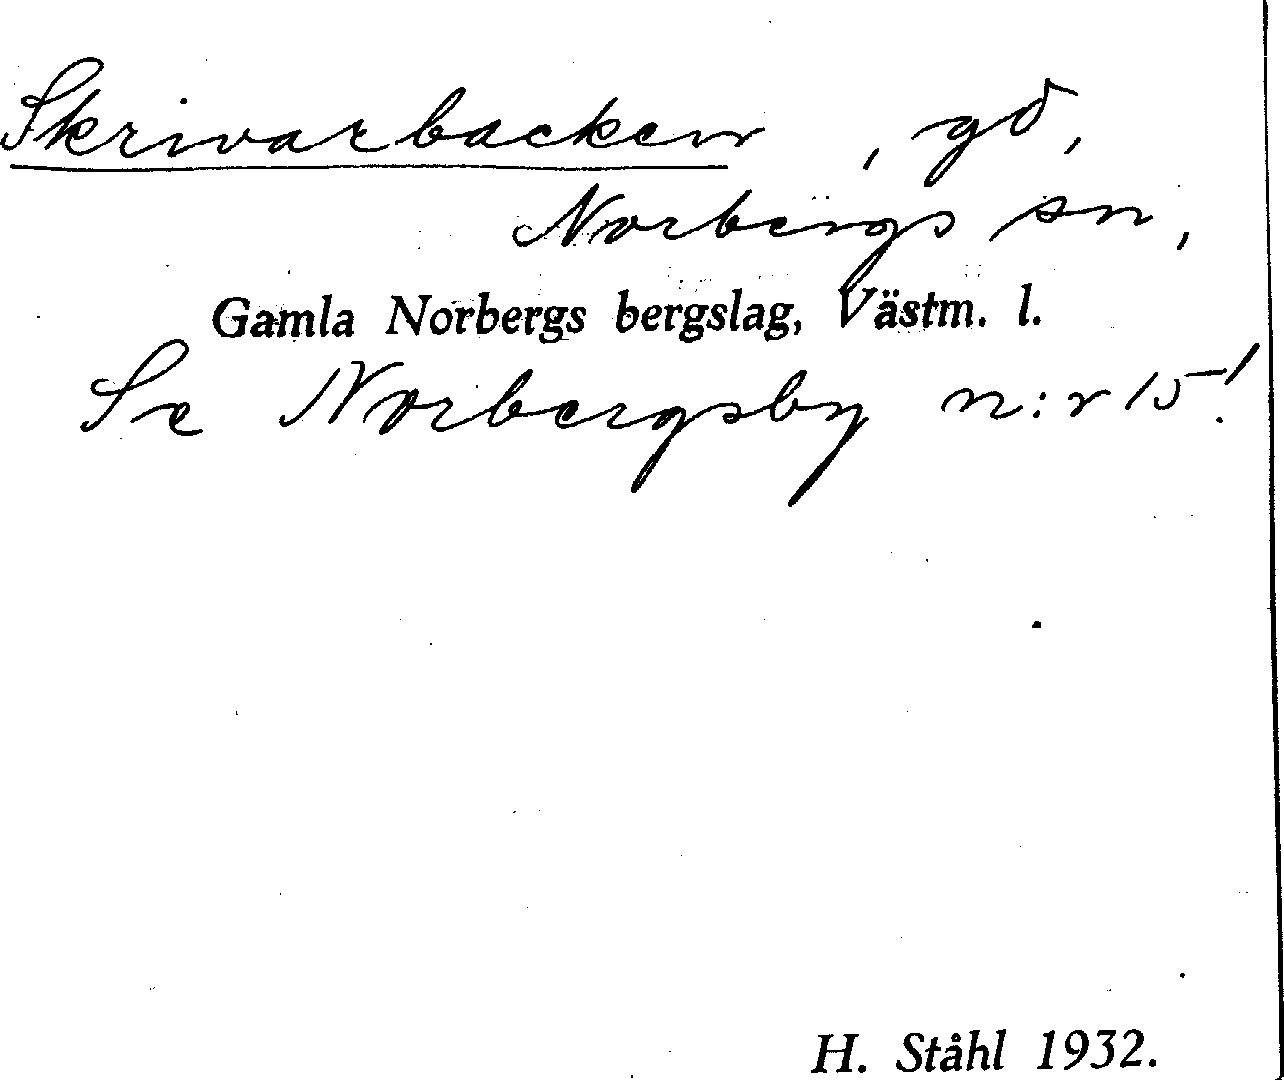 Skrivarbacken, gd,
Norbergs sn,
Gamla Norbergs bergslag, Västm. l.
Se Norbergsby n:r 15!
H. Ståhl 1932.